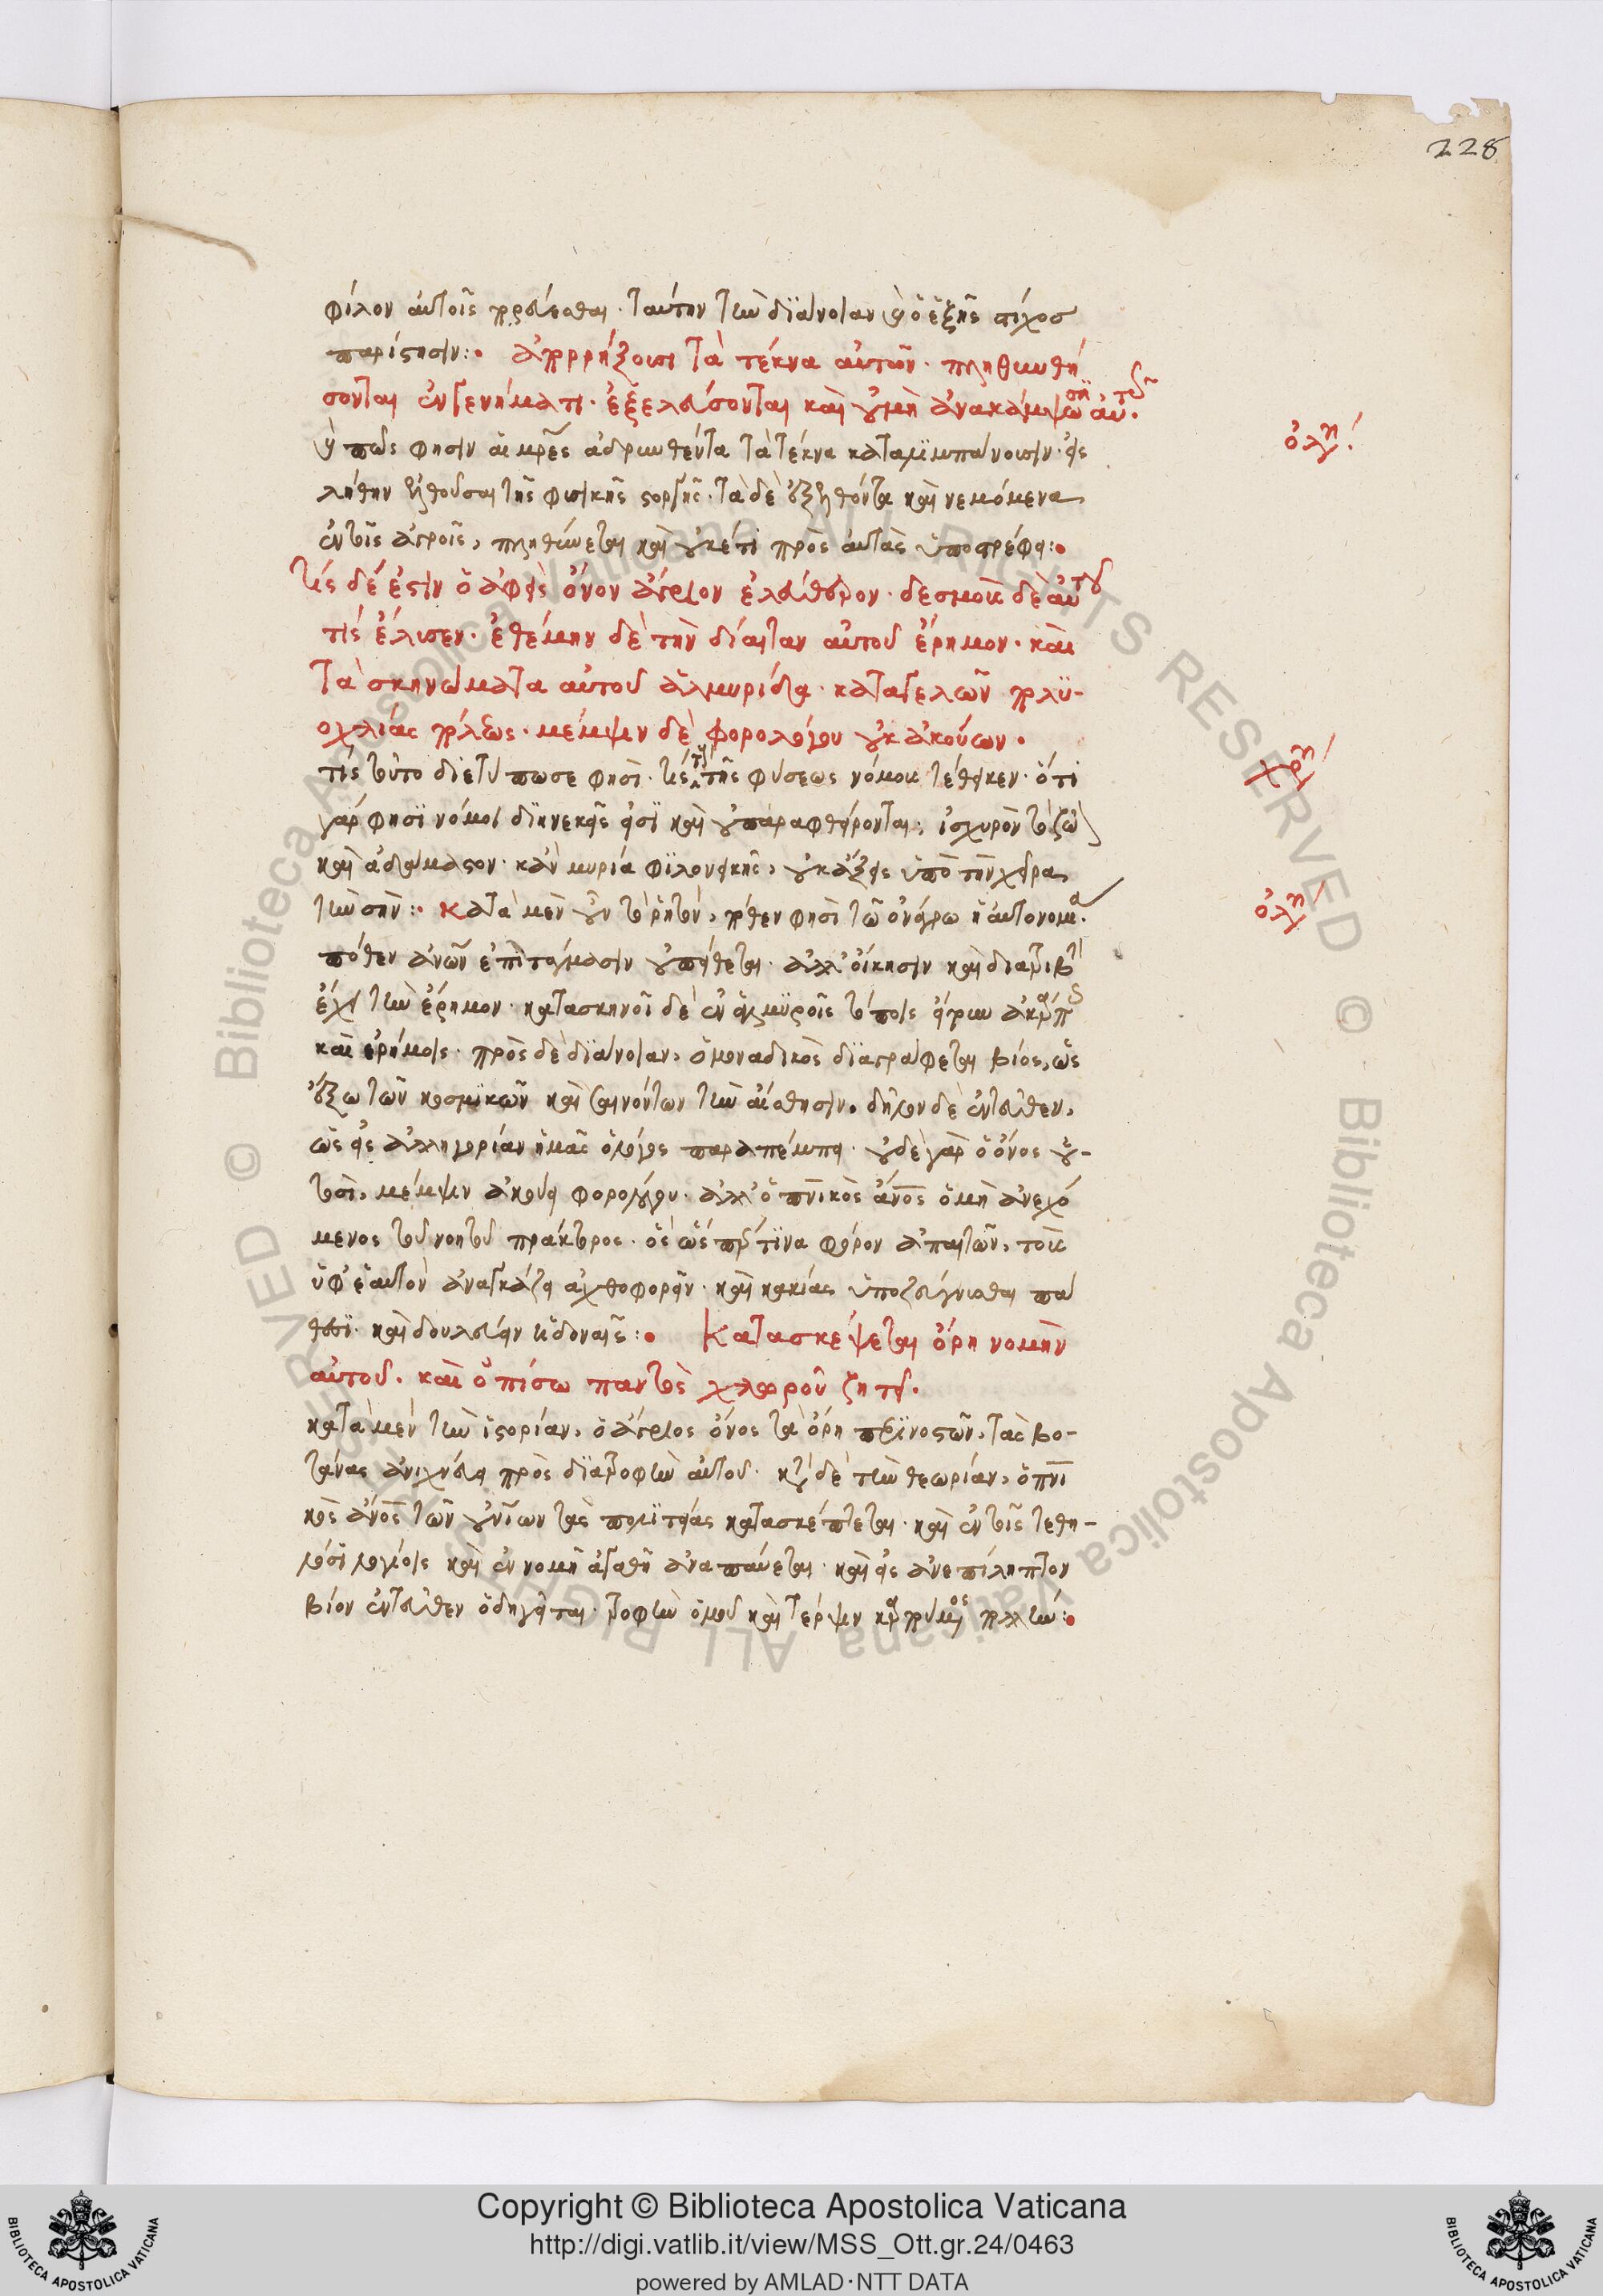 228
φίλον αὐτοῖς προσίεσθαι. ταύτην τὴν διάνοιαν καὶ ὁ ἑξῆς στίχοσ
παρίστησιν: ἀπορρήξουσι τὰ τέκνα αὐτῶν. πληθυνθή
σονται ἐν γενήματι. ἐξελεύσονται καὶ οὐ μὴ ἀνακάμψωσιν αὐτοῖς.
ὀλυ
φησὶν αἱ μρες ἁδρυνθέντα τὰ τέκνα καταλιμπάνουσιν. εἰς
λήθην ἐλθοῦσαι τῆς φυσικῆς στοργῆς. τὰ δὲ ἐξελθόντα καὶ νεμόμενα
ἐν τοῖς ἀγροῖς, πληθύνεται καὶ οὐκέτι πρὸς αὐτὰς ὑποστρέφει:
τίς δέ ἐστιν ὁ ἀφεὶς ὄνον ἄγριον ἐλεύθερον. δεσμοὺς δὲ αὐτοῦ
τίς ἔλυσεν. ἐθέμην δὲ τὴν δίαιταν αὐτοῦ ἔρημον. καὶ
τὰ σκηνώματα αὐτοῦ ἁλμυρίδα. καταγελῶν πολυ-
οχλίας πόλεως. μέμψιν δὲ φορολόγου οὐκ ἀκούων.
χρυ
τίς τοῦτο διετύπωσε φησί. τίς τοὺς τῆς φύσεως νόμους τέθεικεν. ὅτι
γάρ φησι νόμοι διηνεκεῖς εἰσὶ καὶ οὐ παραφθείρονται, ἰσχυρὸν τὸ ζῶον
καὶ ἀδάμαστον. κἂν μυρία φιλονεικῇς, οὐκ ἄξεις ὑπὸ τὴν χεῖρα
τὴν σήν: κατὰ μὲν οὖν τὸ ῥητὸν, πόθεν φησὶ τῷ ὀνάγρῳ ἡ αὐτονομία.
ὀλυ
πόθεν ἀνων ἐπιτάγμασιν οὐ πείθεται. ἀλλ' οἴκησιν καὶ διατριβὴν
ἔχει τὴν ἔρημον. κατασκηνοῖ δὲ ἐν ἁλμυροῖς τόποις
καὶ ἐρήμοις. πρὸς δὲ διάνοιαν, ὁ μοναδικὸς διαγράφεται βίος, ὡς
ἔξω τῶν κοσμικῶν καὶ σαινόντων τὴν αἴσθησιν. δῆλον δὲ ἐντεῦθεν,
ὡς εἰς ἀλληγορίαν ἡμᾶς ὁ λόγος παραπέμπει. οὐδὲ γὰρ ὁ ὄνος οὑ-
τοσὶ, μέμψιν ἀκούει φορολόγου. ἀλλ' ὁ πνικὸς ἄνος ὁ μὴ ἀνεχό
μενος τοῦ νοητοῦ πράκτορος. ὃς ὥσπερ τινα φόρον ἀπαιτῶν, τοὺς
ὑφ' ἑαυτὸν ἀναγκάζει ἀχθοφορεῖν. καὶ κακίας ὑποζεύγνυσθαι πά
θεσι. καὶ δουλεύειν ἡδοναῖς: Κατασκέψεται ὄρη νομὴν
αὐτοῦ. καὶ ὀπίσω παντὸς χλωροῦ ζητεῖ.
κατὰ μὲν τὴν ἱστορίαν, ὁ ἄγριος ὄνος τὰ ὄρη περινοστῶν, τὰς βο-
τάνας ἀνιχνεύει πρὸς διατροφὴν αὐτοῦ. κατὰ δὲ τὴν θεωρίαν, ὁ πνι
κὸς ἄνος τῶν οὐνίων τὰς πολιτείας κατασκέπτεται. καὶ ἐν τοῖς τεθη-
λόσι λογίοις καὶ ἐν νομῇ ἀγαθῇ ἀναπαύεται. καὶ εἰς ἀνεπίληπτον
βίον ἐντεῦθεν ὁδηγεῖται. τροφὴν ὁμοῦ καὶ τέρψιν πολλήν:
Copyright © Biblioteca Apostolica Vaticana
http://digi.vatlib.it/view/MSS_Ott.gr.24/0463
powered by AMLAD·NTT DATA